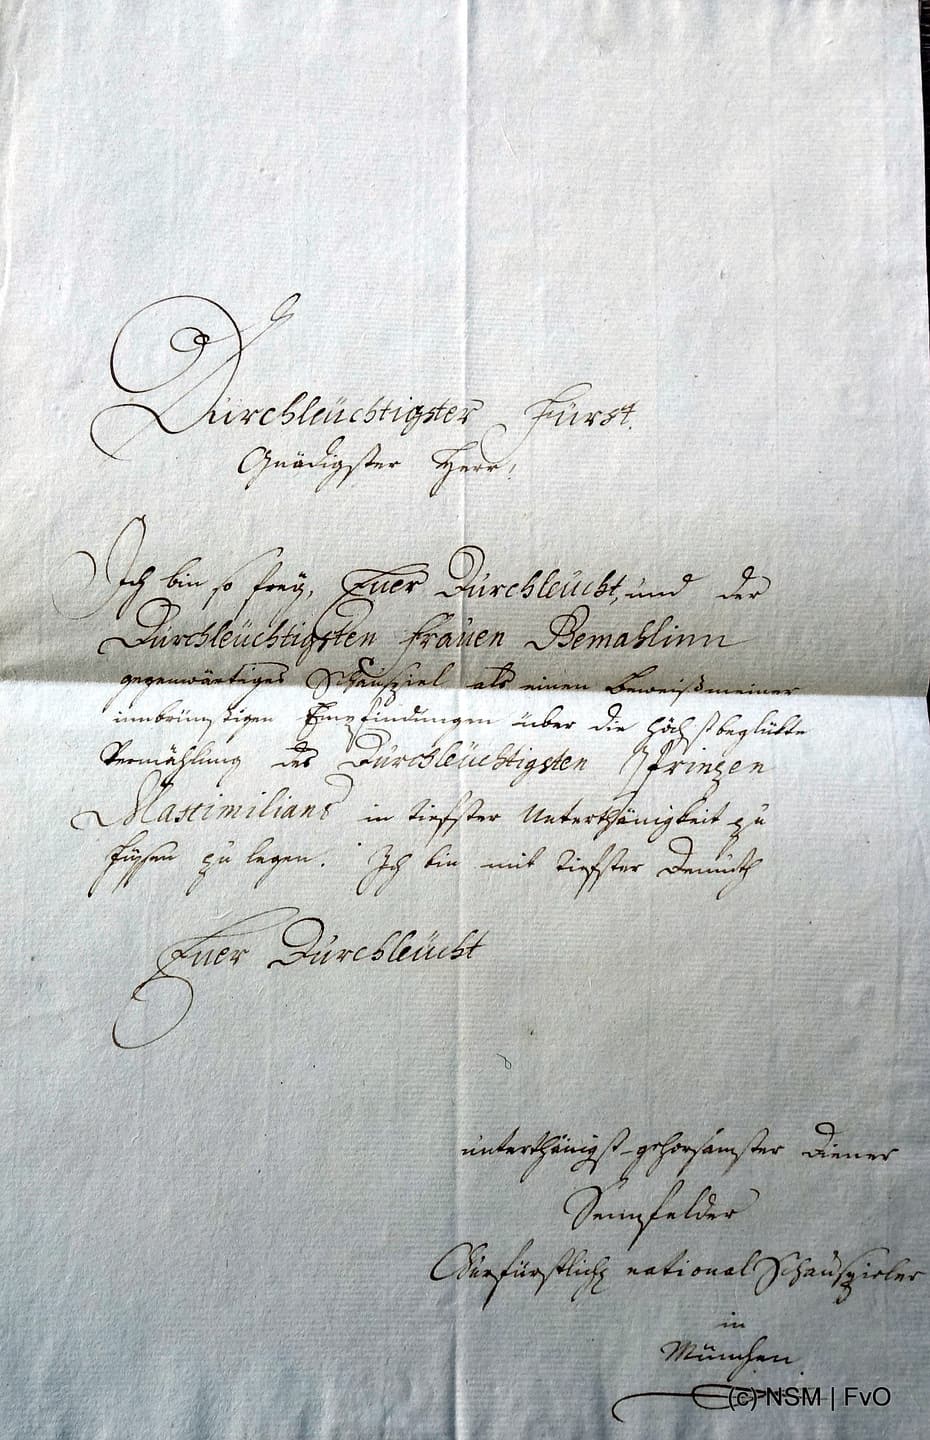 Durchleüchtigster Fürst.
Gnädigster Herr!
Ich bin so freÿ, Euer Durchleücht, und der
Durchleüchtigsten Frauen Gemahlinn
gegenwärtiges Schauspiel als einen Beweiß meiner
innbrünstigen Empfindungen über die höchstbeglükte
Vermählung des Durchleüchtigsten Prinzen
Maximilians in tiefster Unterthänigkeit zu
Füssen zu legen. Ich bin mit tiefster Demuth
Euer Durchleücht
unterthänigst-gehorsamster Diener
Sennefelder
Churfürstlich national Schauspieler
in
München
(c) NSM | FvO